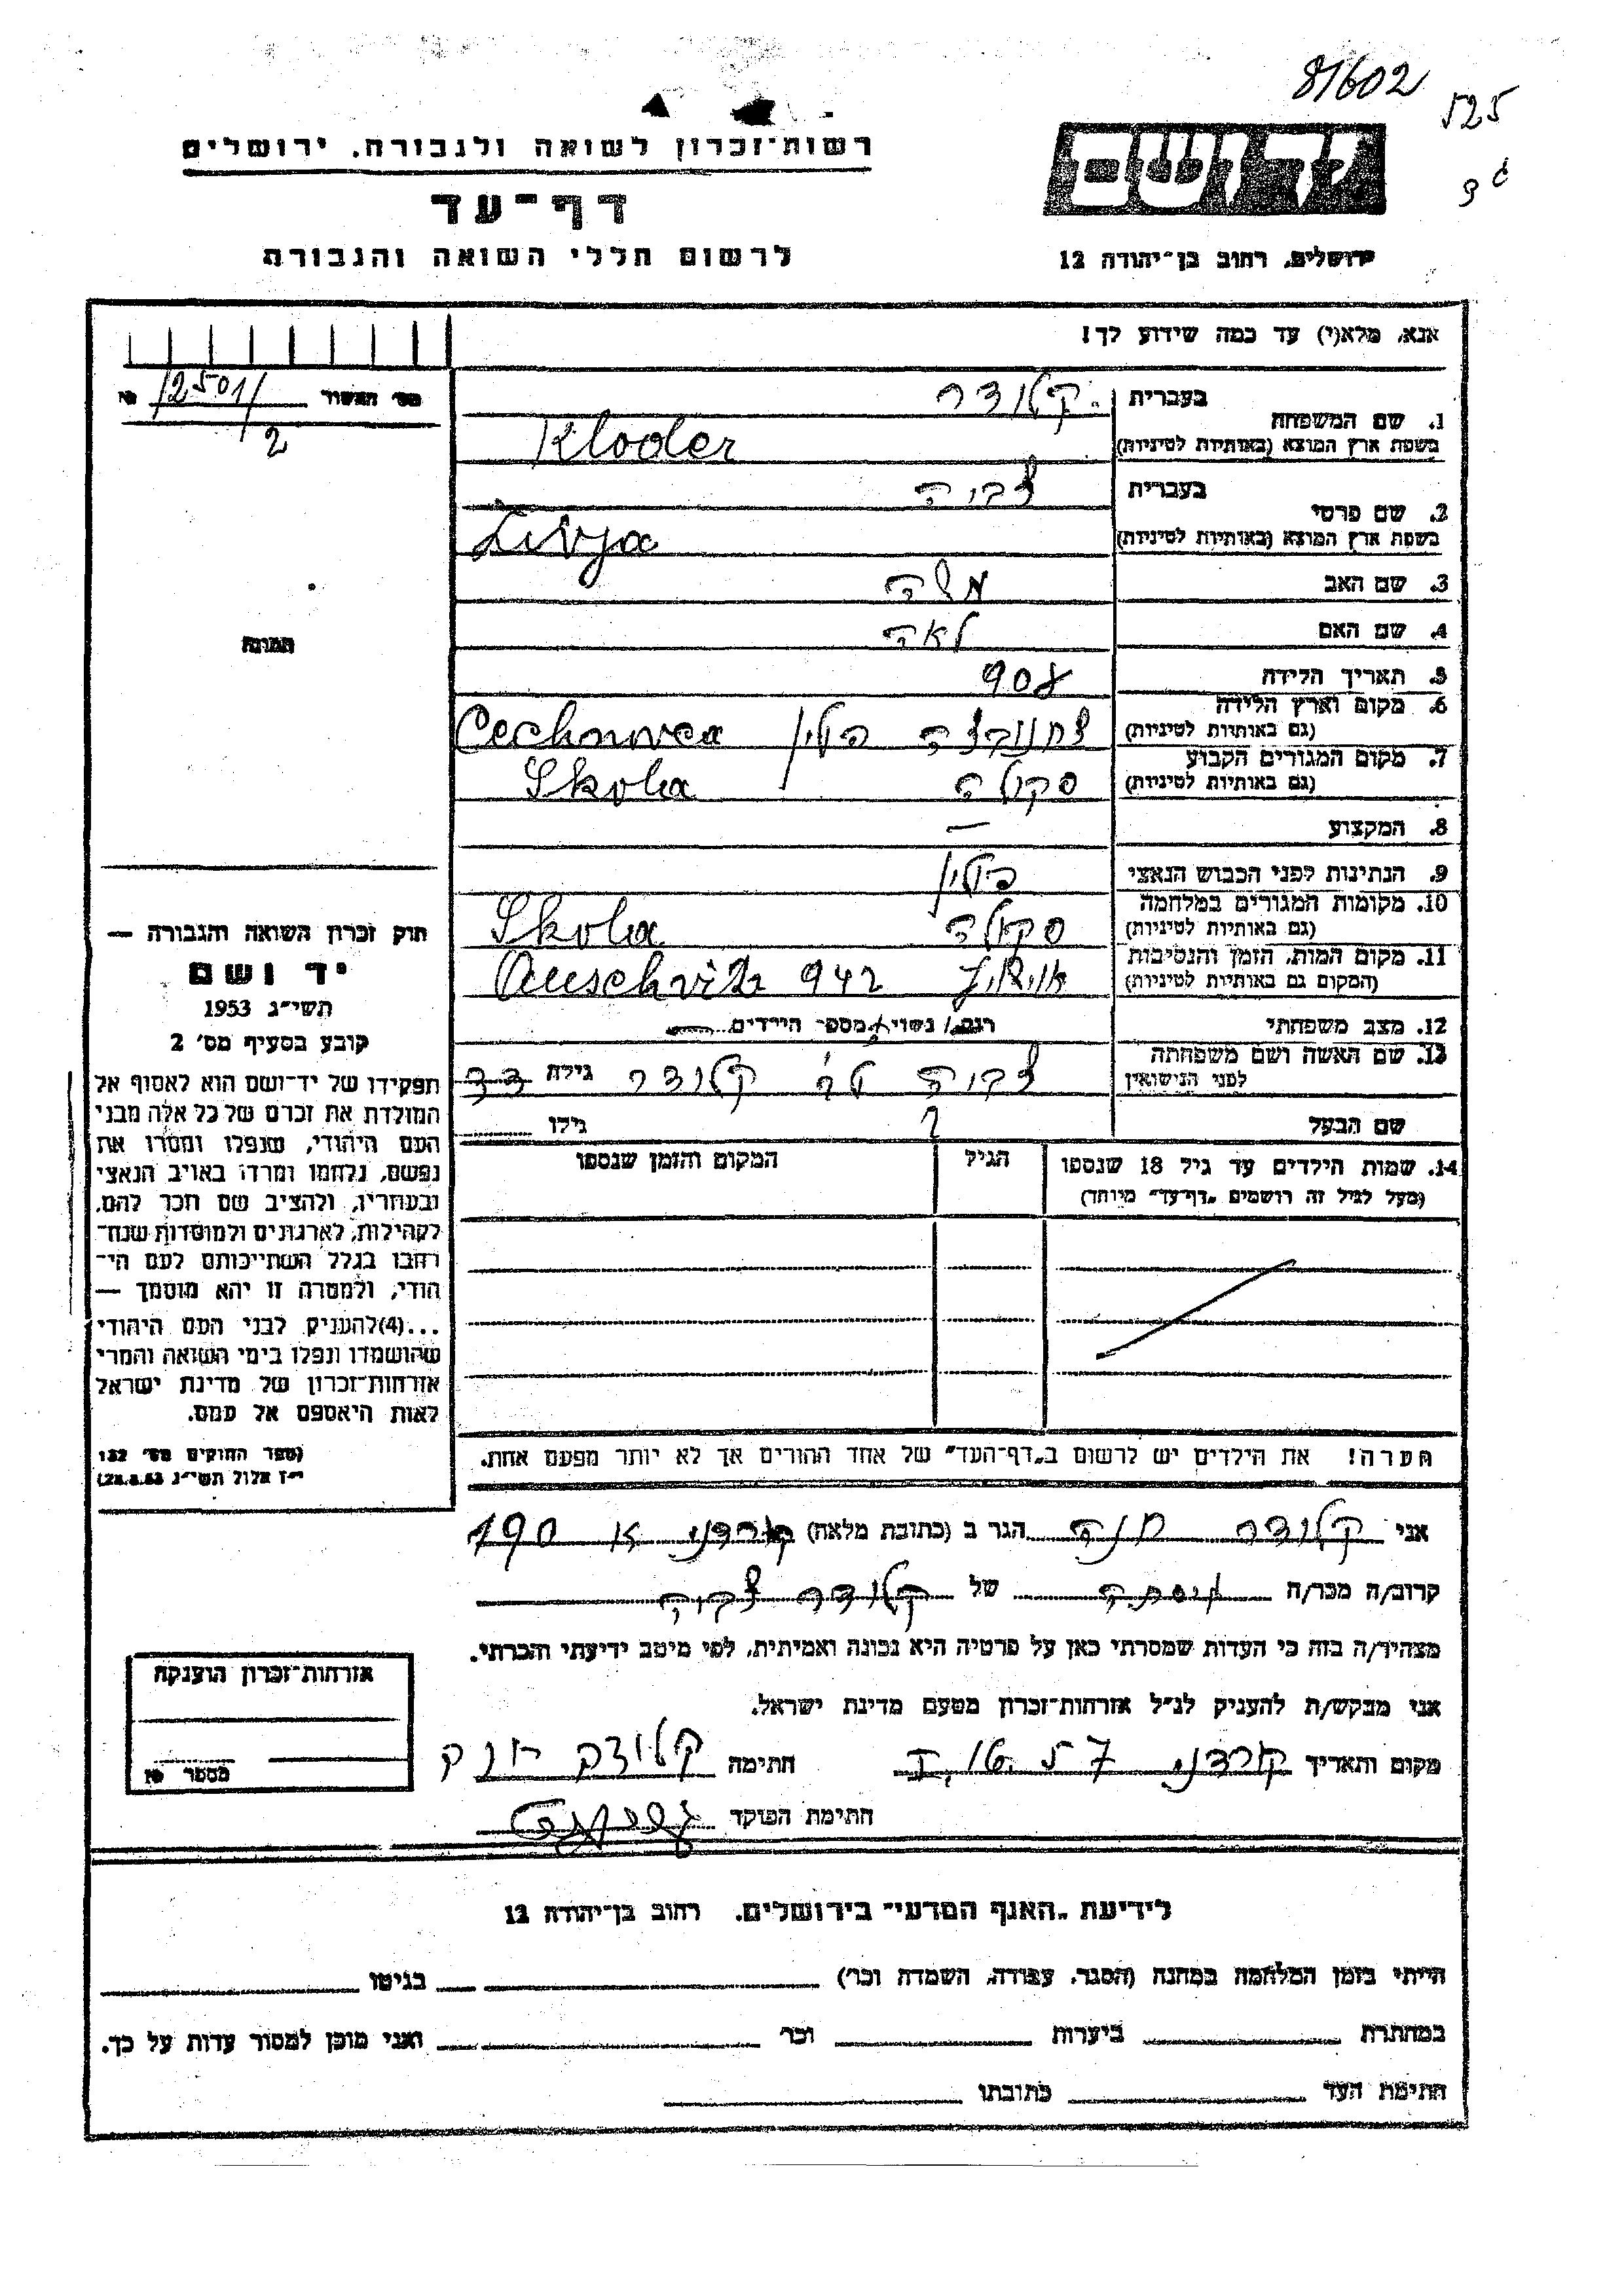 81602
525
רשות־זכרון לשואה ולגבורה. ירושלים
דף־עד
לרשום חללי השואה והגבורה
ידושם
ירושלים, רחוב בן־יהודה 12
אנא, מלא(י) עד כמה שידוע לך!
מס׳ האשור 12501/ No
2
תמונה
1. שם המשפחה
בעברית קלודר
בשפת ארץ המוצא (באותיות לטיניות) Kloder
2. שם פרטי
בעברית צביה
בשפת ארץ המוצא (באותיות לטיניות) Zivja
3. שם האב משה
4. שם האם לאה
5. תאריך הלידה 908
6. מקום וארץ הלידה (גם באותיות לטיניות) צחנובצה פולין Cechnovca
7. מקום המגורים הקבוע (גם באותיות לטיניות) סקולה Skola
8. המקצוע —
9. הנתינות לפני הכבוש הנאצי פולין
10. מקומות המגורים במלחמה (גם באותיות לטיניות) סקולה Skola
11. מקום המות, הזמן והנסיבות (המקום גם באותיות לטיניות) Auschvitz 942
12. מצב משפחתי רוק/ נשוי/ מספר הילדים
13. שם האשה ושם משפחתה לפני הנישואין צביה לב׳ קלודר גילה 33
שם הבעל ? גילו
14. שמות הילדים עד גיל 18 שנספו (מעל לגיל זה רושמים „דף־עד״ מיוחד) הגיל המקום והזמן שנספו
הערה! את הילדים יש לרשום ב„דף־העד״ של אחד ההורים אך לא יותר מפעם אחת.
חוק זכרון השואה והגבורה —
יד ושם
תשי״ג 1953
קובע בסעיף מס׳ 2
תפקידו של יד־ושם הוא לאסוף אל
המולדת את זכרם של כל אלה מבני
העם היהודי, שנפלו ומסרו את
נפשם, נלחמו ומרדו באויב הנאצי
ובעוזריו, ולהציב שם וזכר להם,
לקהילות, לארגונים ולמוסדות שנח־
רחבו בגלל השתייכותם לעם הי־
הודי, ולמטרה זו יהא מוסמך —
...(4)להעניק לבני העם היהודי
שהושמדו ונפלו בימי השואה והמרי
אזרחות־זכרון של מדינת ישראל
לאות היאספם אל עמם.
(ספר החוקים מס׳ 132
י״ז אלול תשי״ג 28.8.53)
אני קלודר חנה הגר ב (כתובת מלאה) קורדני א 190
קרוב/ה מכר/ה גיסתה של קלודר צביה
מצהיר/ה בזה כי העדות שמסרתי כאן על פרטיה היא נכונה ואמיתית, לפי מיטב ידיעתי והכרתי.
אני מבקש/ת להעניק לנ״ל אזרחות־זכרון מטעם מדינת ישראל.
מקום ותאריך קורדני חתימה קלודר חנה
חתימת הפוקד
אזרחות־זכרון הוענקה
מספר No
לידיעת „האגף המדעי״ בירושלים, רחוב בן־יהודה 12
הייתי בזמן המלחמה במחנה (הסגר, עבודה, השמדה וכו׳) בגיטו
במחתרת ביערות וכו׳ ואני מוכן למסור עדות על כך.
חתימת העד כתובתו